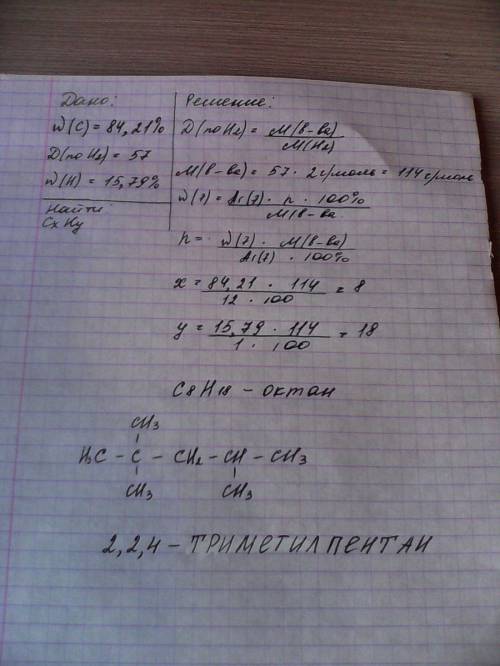 Дано:
W(C) = 84,21%
D(по H2) = 57
W(H) = 15,79%
Найти
CxHy
Решение:
D(по H2) = M(в-ва) / M(H2)
M(в-ва) = 57 · 2 г/моль = 114 г/моль
W(э) = Ar(э) · n · 100% / M(в-ва
n = W(э) · M(в-ва) / Ar(э) · 100%
x = 84,21 · 114 / 12 · 100 = 8
y = 15,79 · 114 / 1 · 100 = 18
C8H18 - октан
CH3
H3C - C - CH2 - CH - CH3
CH3 CH3
2,2,4 - ТРИМЕТИЛПЕНТАН